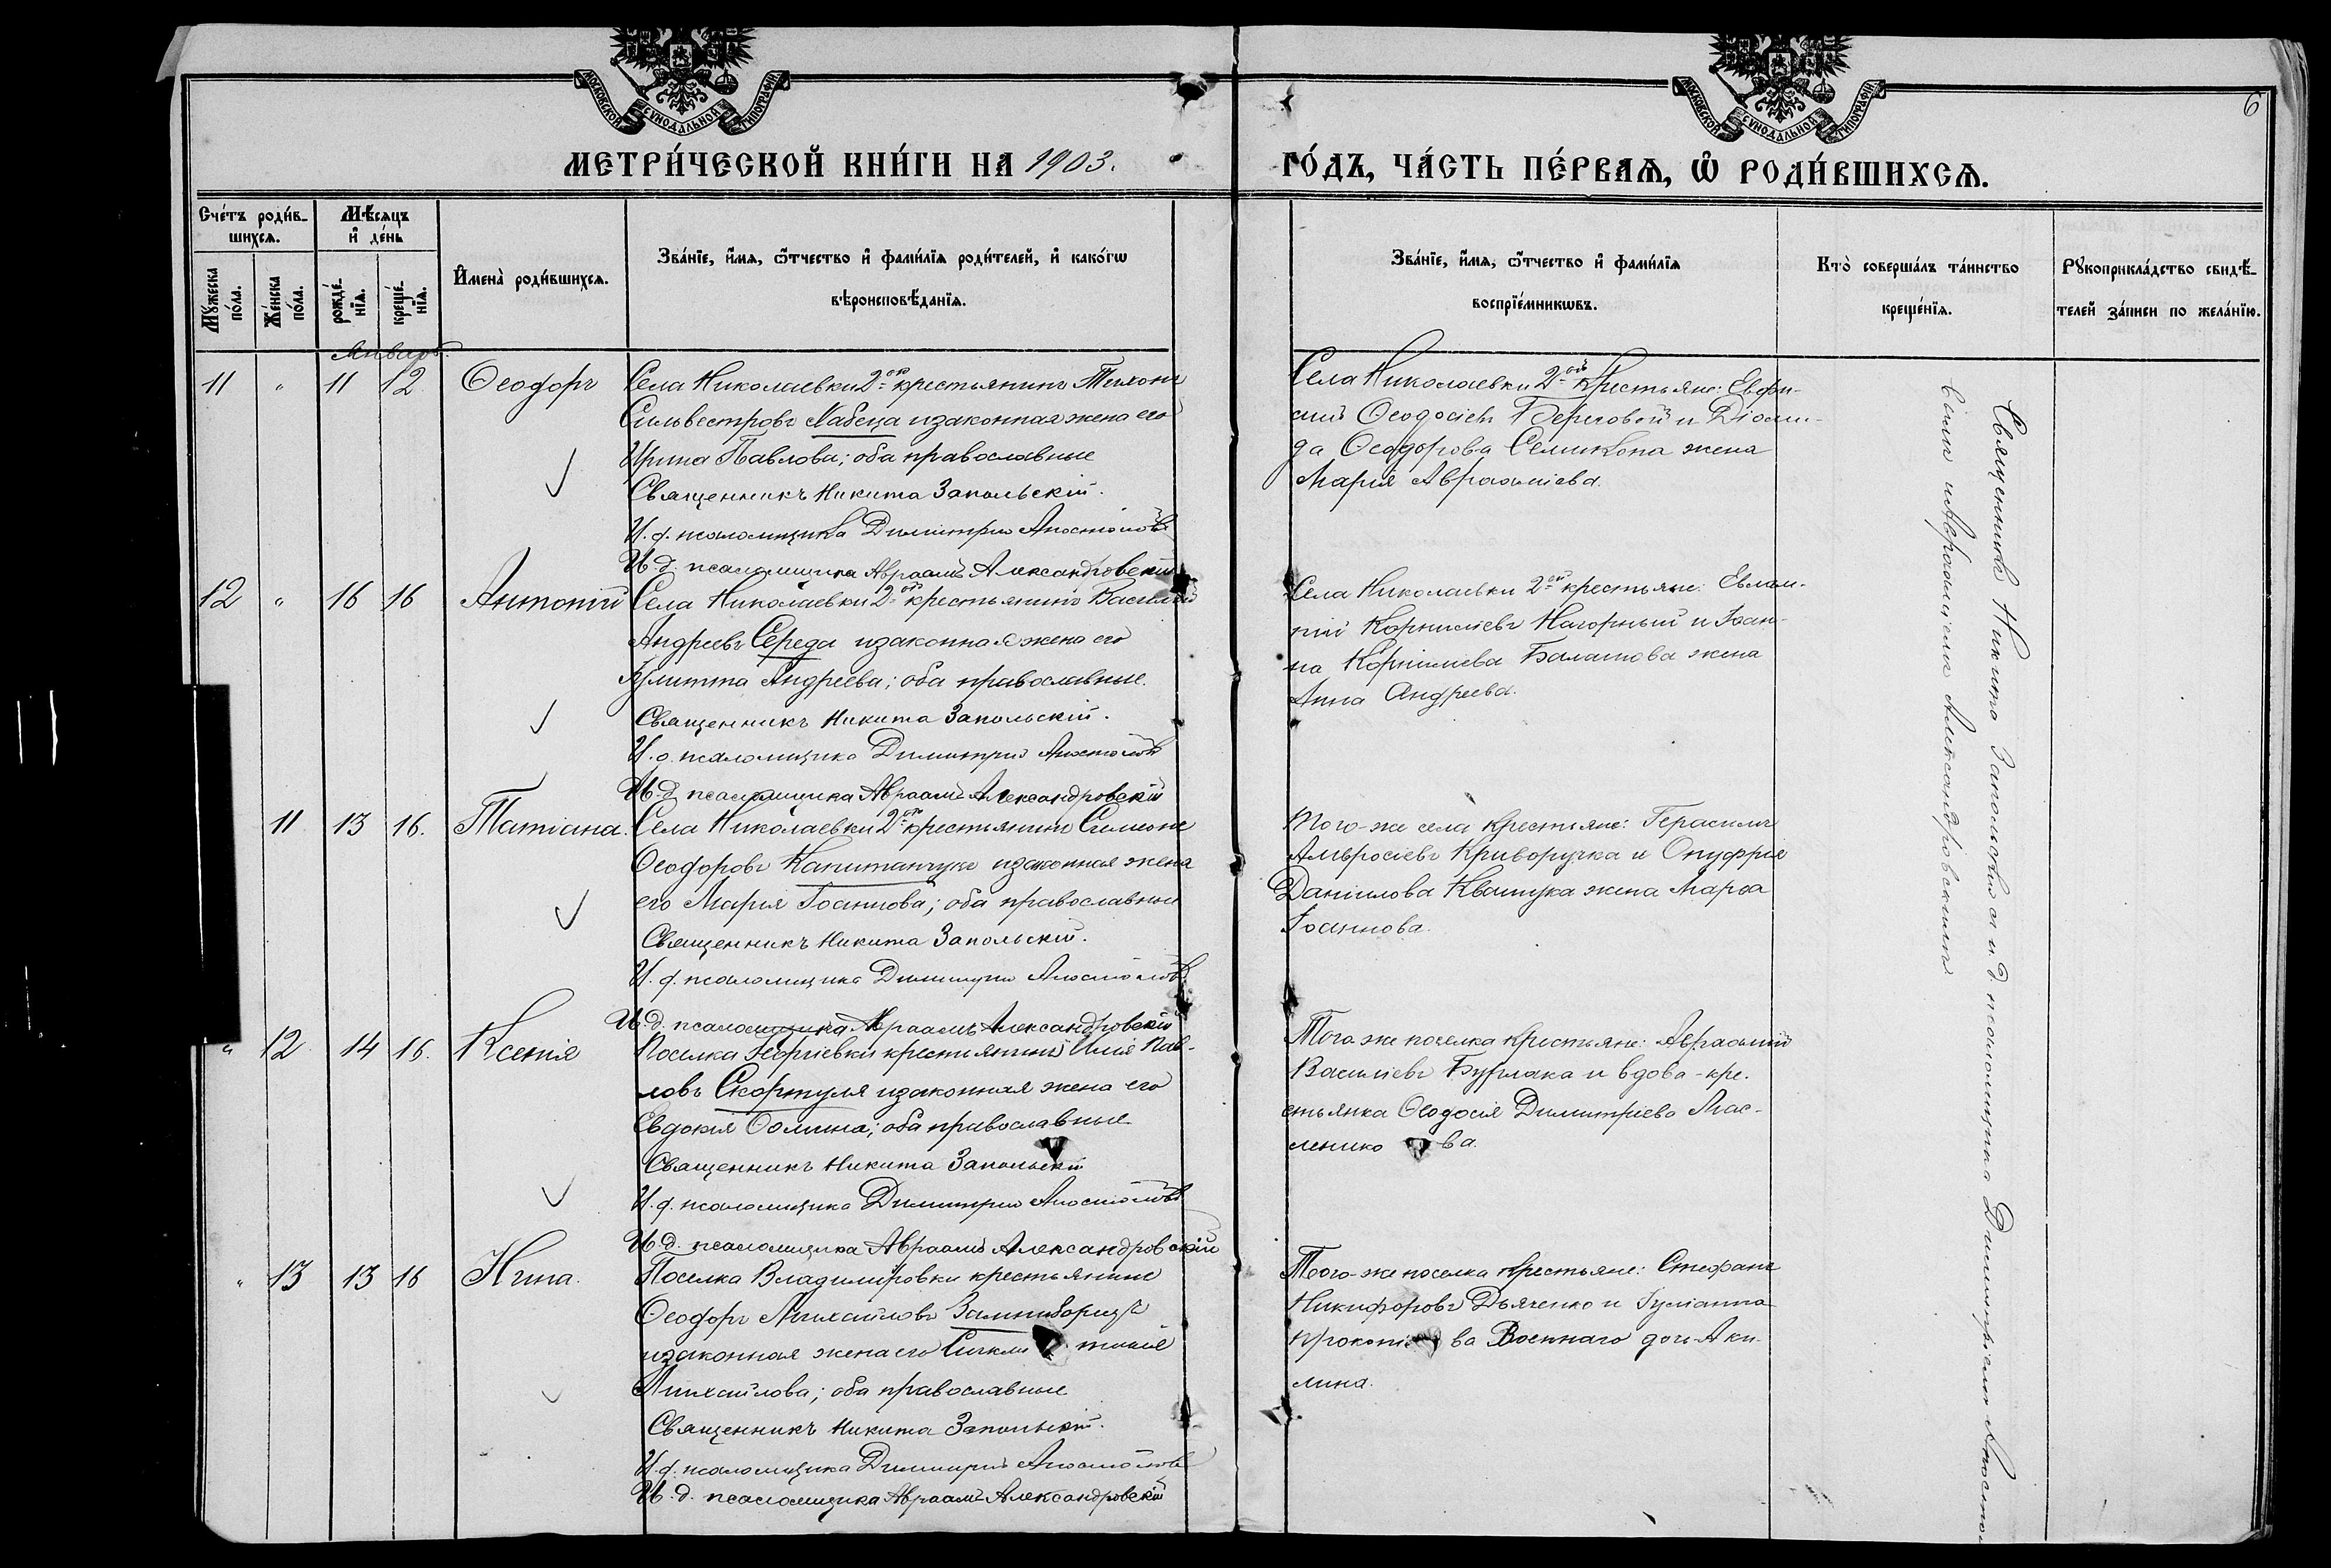 МОСКОВСКОЙ СѴНОДАЛЬНОЙ ТИПОГРАФІИ
МОСКОВСКОЙ СѴНОДАЛЬНОЙ ТИПОГРАФІИ
6
МЕТРИ́ЧЕСКОЙ КНИ́ГИ НА 1903.
ГО́ДЪ, ЧА́СТЬ ПЕ́РВАѦ, Ѡ҆ РОДИ́ВШИХСѦ.
Сче́тъ роди́в-
шихсѧ.
Мѣ́сѧцъ
и҆ де́нь
Мꙋ́жеска
по́ла.
Же́нска
по́ла.
рожде́-
нїѧ.
креще́-
нїѧ.
И҆мена̀ роди́вшихсѧ.
Зва́нїе, и҆́мѧ, ѻ҆́тчество и҆ фами́лїѧ роди́телей, и҆ како́гѡ
вѣроисповѣ́данїѧ.
Зва́нїе, и҆́мѧ, ѻ҆́тчество и҆ фами́лїѧ
воспрїе́мникѡвъ.
Кто̀ соверша́лъ та́инство
креще́нїѧ.
Рꙋкоприкла́дство свидѣ́-
телей за́писи по жела́нїю.
Январь.
11 " 11 12 Ѳеодоръ
Села Николаевки 2-ой крестьянинъ Тихонъ
Сильвестровъ Лабеца и законная жена его
Ирина Павлова; оба православные
Священникъ Никита Запольскій.
И. д. псаломщика Димитрій Апостоловъ
И. д. псаломщика Авраамъ Александровскій
Села Николаевки 2-ой крестьяне: Евфи-
мій Ѳеодосіевъ Береговой и Діоми-
да Ѳеодорова Семикопа жена
Марія Авраамiева.
12 " 16 16 Антоній
Села Николаевки 2-ой крестьянинъ Василій
Андреевъ Середа и законная жена его
Іулитта Андреева; оба православные.
Священникъ Никита Запольскій.
И. д. псаломщика Димитрій Апостоловъ
И. д. псаломщика Авраамъ Александровскій
Села Николаевки 2-ой крестьяне: Евлам-
пій Корниліевъ Нагорный и Іоан-
на Корниліева Балашова жена
Анна Андреева.
11 13 16. Татіана.
Села Николаевки 2-ой крестьянинъ Симеонъ
Ѳеодоровъ Капитанчукъ и законная жена
его Марія Іоаннова; оба православные
Священникъ Никита Запольскій.
И. д. псаломщика Димитрій Апостоловъ
И. д. псаломщика Авраамъ Александровскій
Того-же села крестьяне: Герасимъ
Амвросіевъ Криворучка и Онуфрія
Даніилова Квашука жена Марѳа
Іоаннова.
" 12 14 16. Ксенія
Поселка Георгіевки крестьянинъ Илія Пав-
ловъ Скортуля и законная жена его
Евдокія Ѳомина; оба православные
Священникъ Никита Запольскій
И. д. псаломщика Димитрій Апостоловъ
И. д. псаломщика Авраамъ Александровскій
Того-же поселка крестьяне: Авраамій
Василіевъ Бурлака и вдова-кре-
стьянка Ѳеодосія Димитріева Мас-
ленико ва.
" 13 13 16 Нина.
Поселка Владимировки крестьянинъ
Ѳеодоръ Михайловъ
и законная жена его
Михайлова; оба православные
Священникъ Никита Запольскій.
И. д. псаломщика Димитрій Апостоловъ
И. д. псаломщика Авраамъ Александровскій
Того-же поселка крестьяне: Стефанъ
Никифоровъ Дьяченко и Іуліанна
Прокопіева Военнаго дочь Аки-
лина.
Священникъ Никита Запольскій съ и. д. псаломщика Димитріемъ Апостоло-
вымъ и Авраамiемъ Александровскимъ